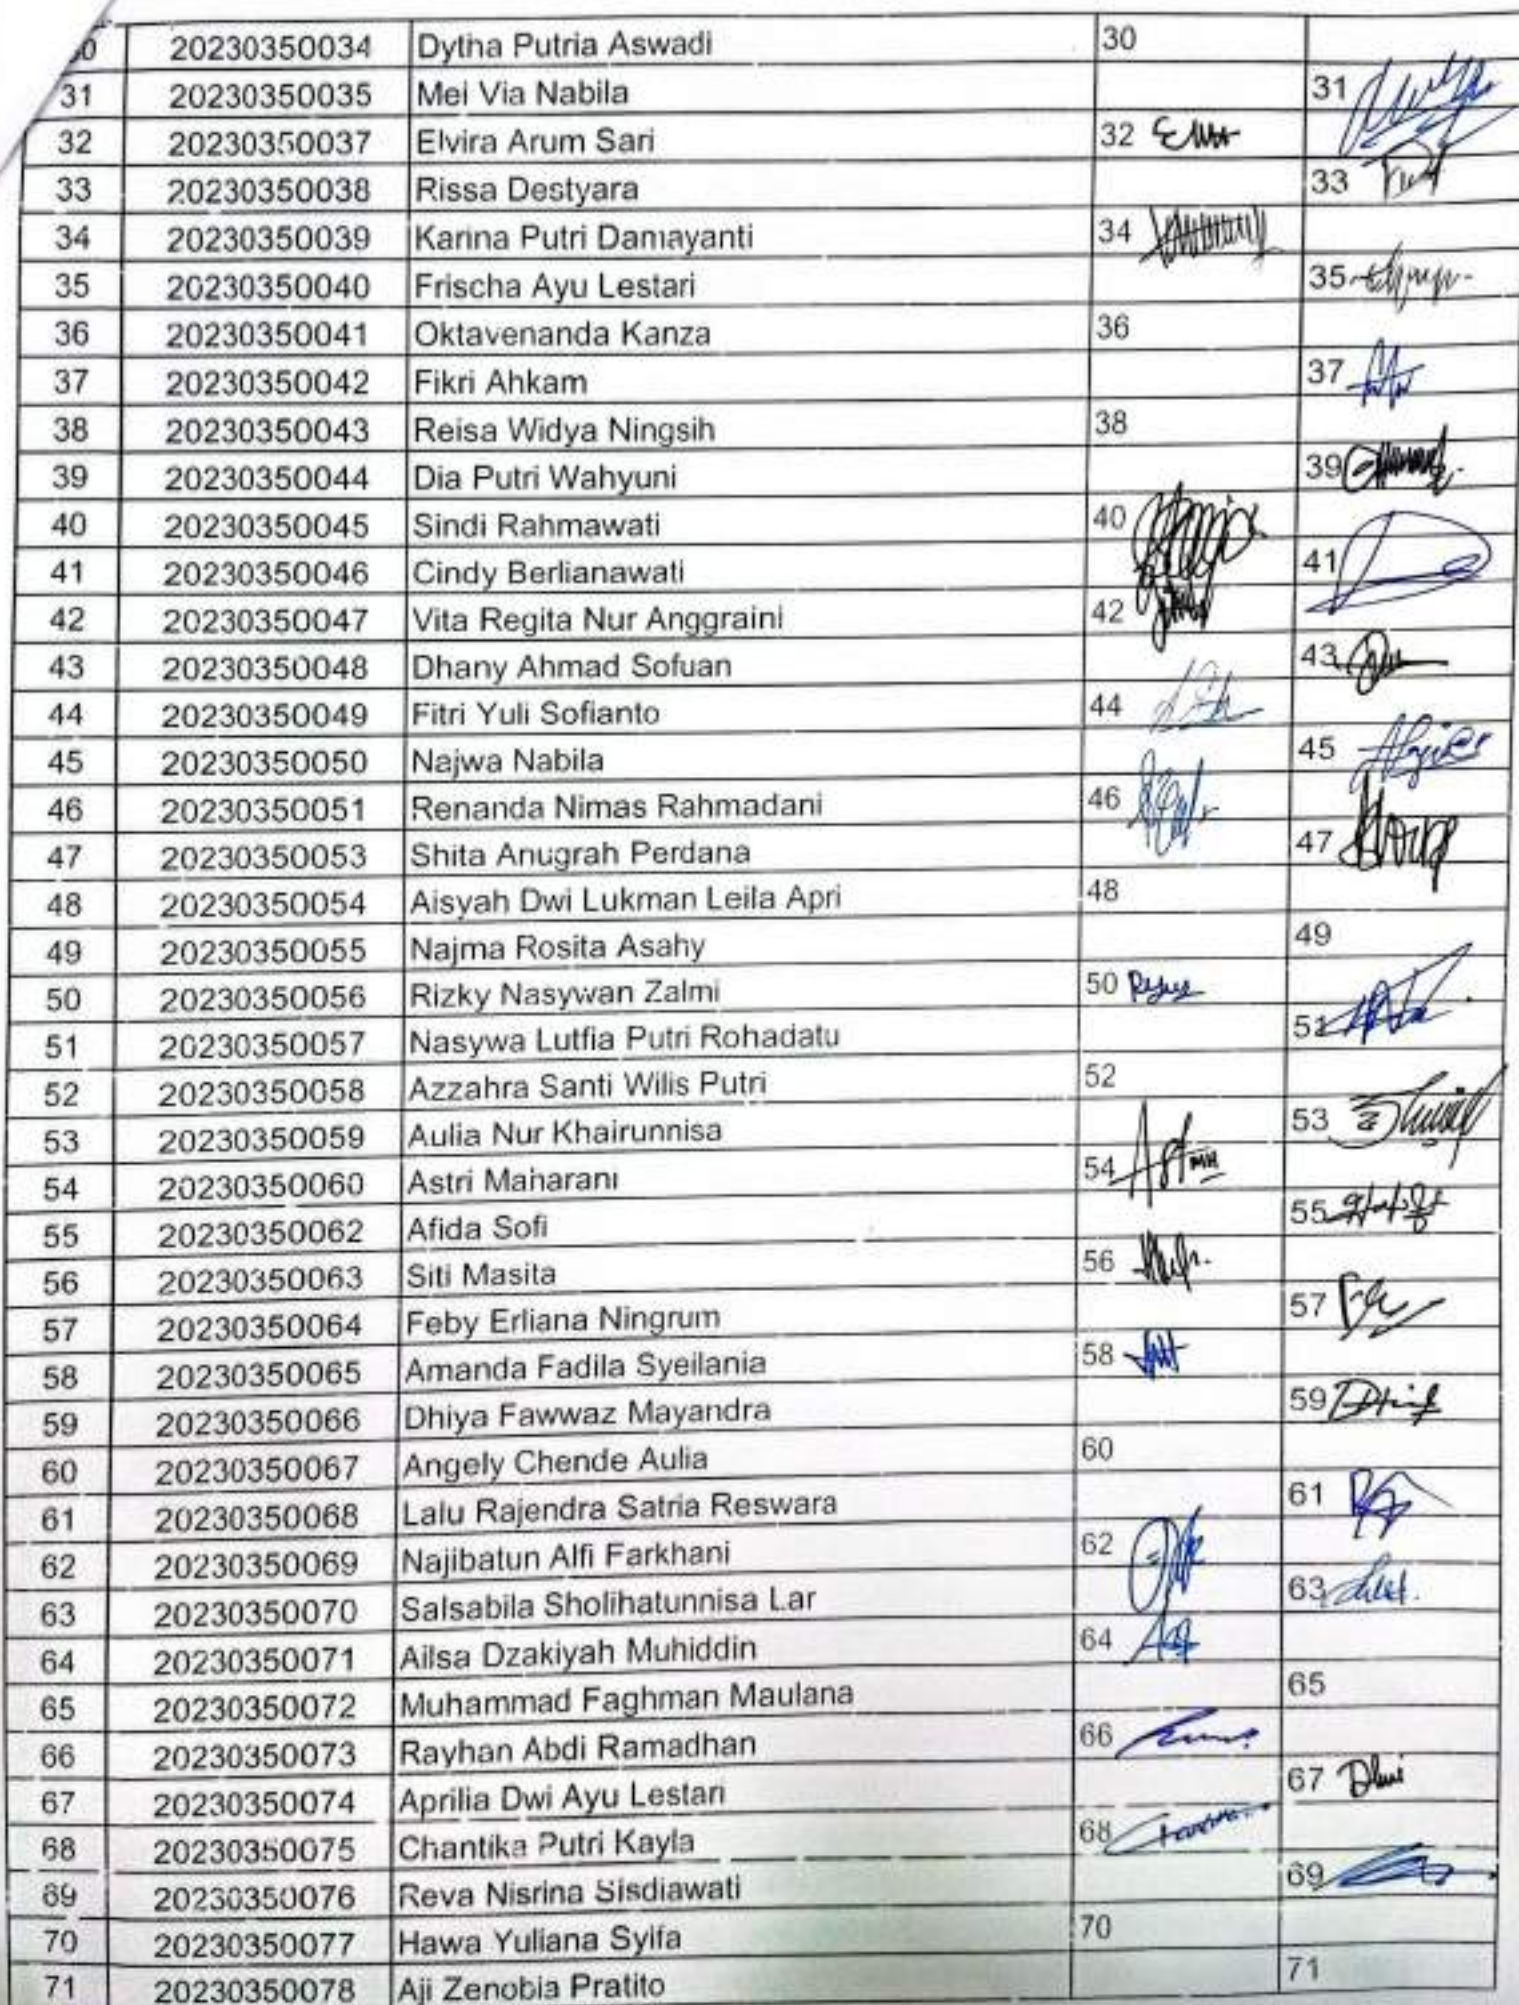 0 20230350034 Dytha Putria Aswadi 30
31 20230350035 Mei Via Nabila 31
32 20230350037 Elvira Arum Sari 32
33 20230350038 Rissa Destyara 33
34 20230350039 Karina Putri Damayanti 34
35 20230350040 Frischa Ayu Lestari 35
36 20230350041 Oktavenanda Kanza 36
37 20230350042 Fikri Ahkam 37
38 20230350043 Reisa Widya Ningsih 38
39 20230350044 Dia Putri Wahyuni 39
40 20230350045 Sindi Rahmawati 40
41 20230350046 Cindy Berlianawati 41
42 20230350047 Vita Regita Nur Anggraini 42
43 20230350048 Dhany Ahmad Sofuan 43
44 20230350049 Fitri Yuli Sofianto 44
45 20230350050 Najwa Nabila 45
46 20230350051 Renanda Nimas Rahmadani 46
47 20230350053 Shita Anugrah Perdana 47
48 20230350054 Aisyah Dwi Lukman Leila Apri 48
49 20230350055 Najma Rosita Asahy 49
50 20230350056 Rizky Nasywan Zalmi 50
51 20230350057 Nasywa Lutfia Putri Rohadatu 51
52 20230350058 Azzahra Santi Wilis Putri 52
53 20230350059 Aulia Nur Khairunnisa 53
54 20230350060 Astri Maharani 54
55 20230350062 Afida Sofi 55
56 20230350063 Siti Masita 56
57 20230350064 Feby Erliana Ningrum 57
58 20230350065 Amanda Fadila Syeilania 58
59 20230350066 Dhiya Fawwaz Mayandra 59
60 20230350067 Angely Chende Aulia 60
61 20230350068 Lalu Rajendra Satria Reswara 61
62 20230350069 Najibatun Alfi Farkhani 62
63 20230350070 Salsabila Sholihatunnisa Lar 63
64 20230350071 Ailsa Dzakiyah Muhiddin 64
65 20230350072 Muhammad Faghman Maulana 65
66 20230350073 Rayhan Abdi Ramadhan 66
67 20230350074 Aprilia Dwi Ayu Lestari 67
68 20230350075 Chantika Putri Kayla 68
69 20230350076 Reva Nisrina Sisdiawati 69
70 20230350077 Hawa Yuliana Syifa 70
71 20230350078 Aji Zenobia Pratito 71